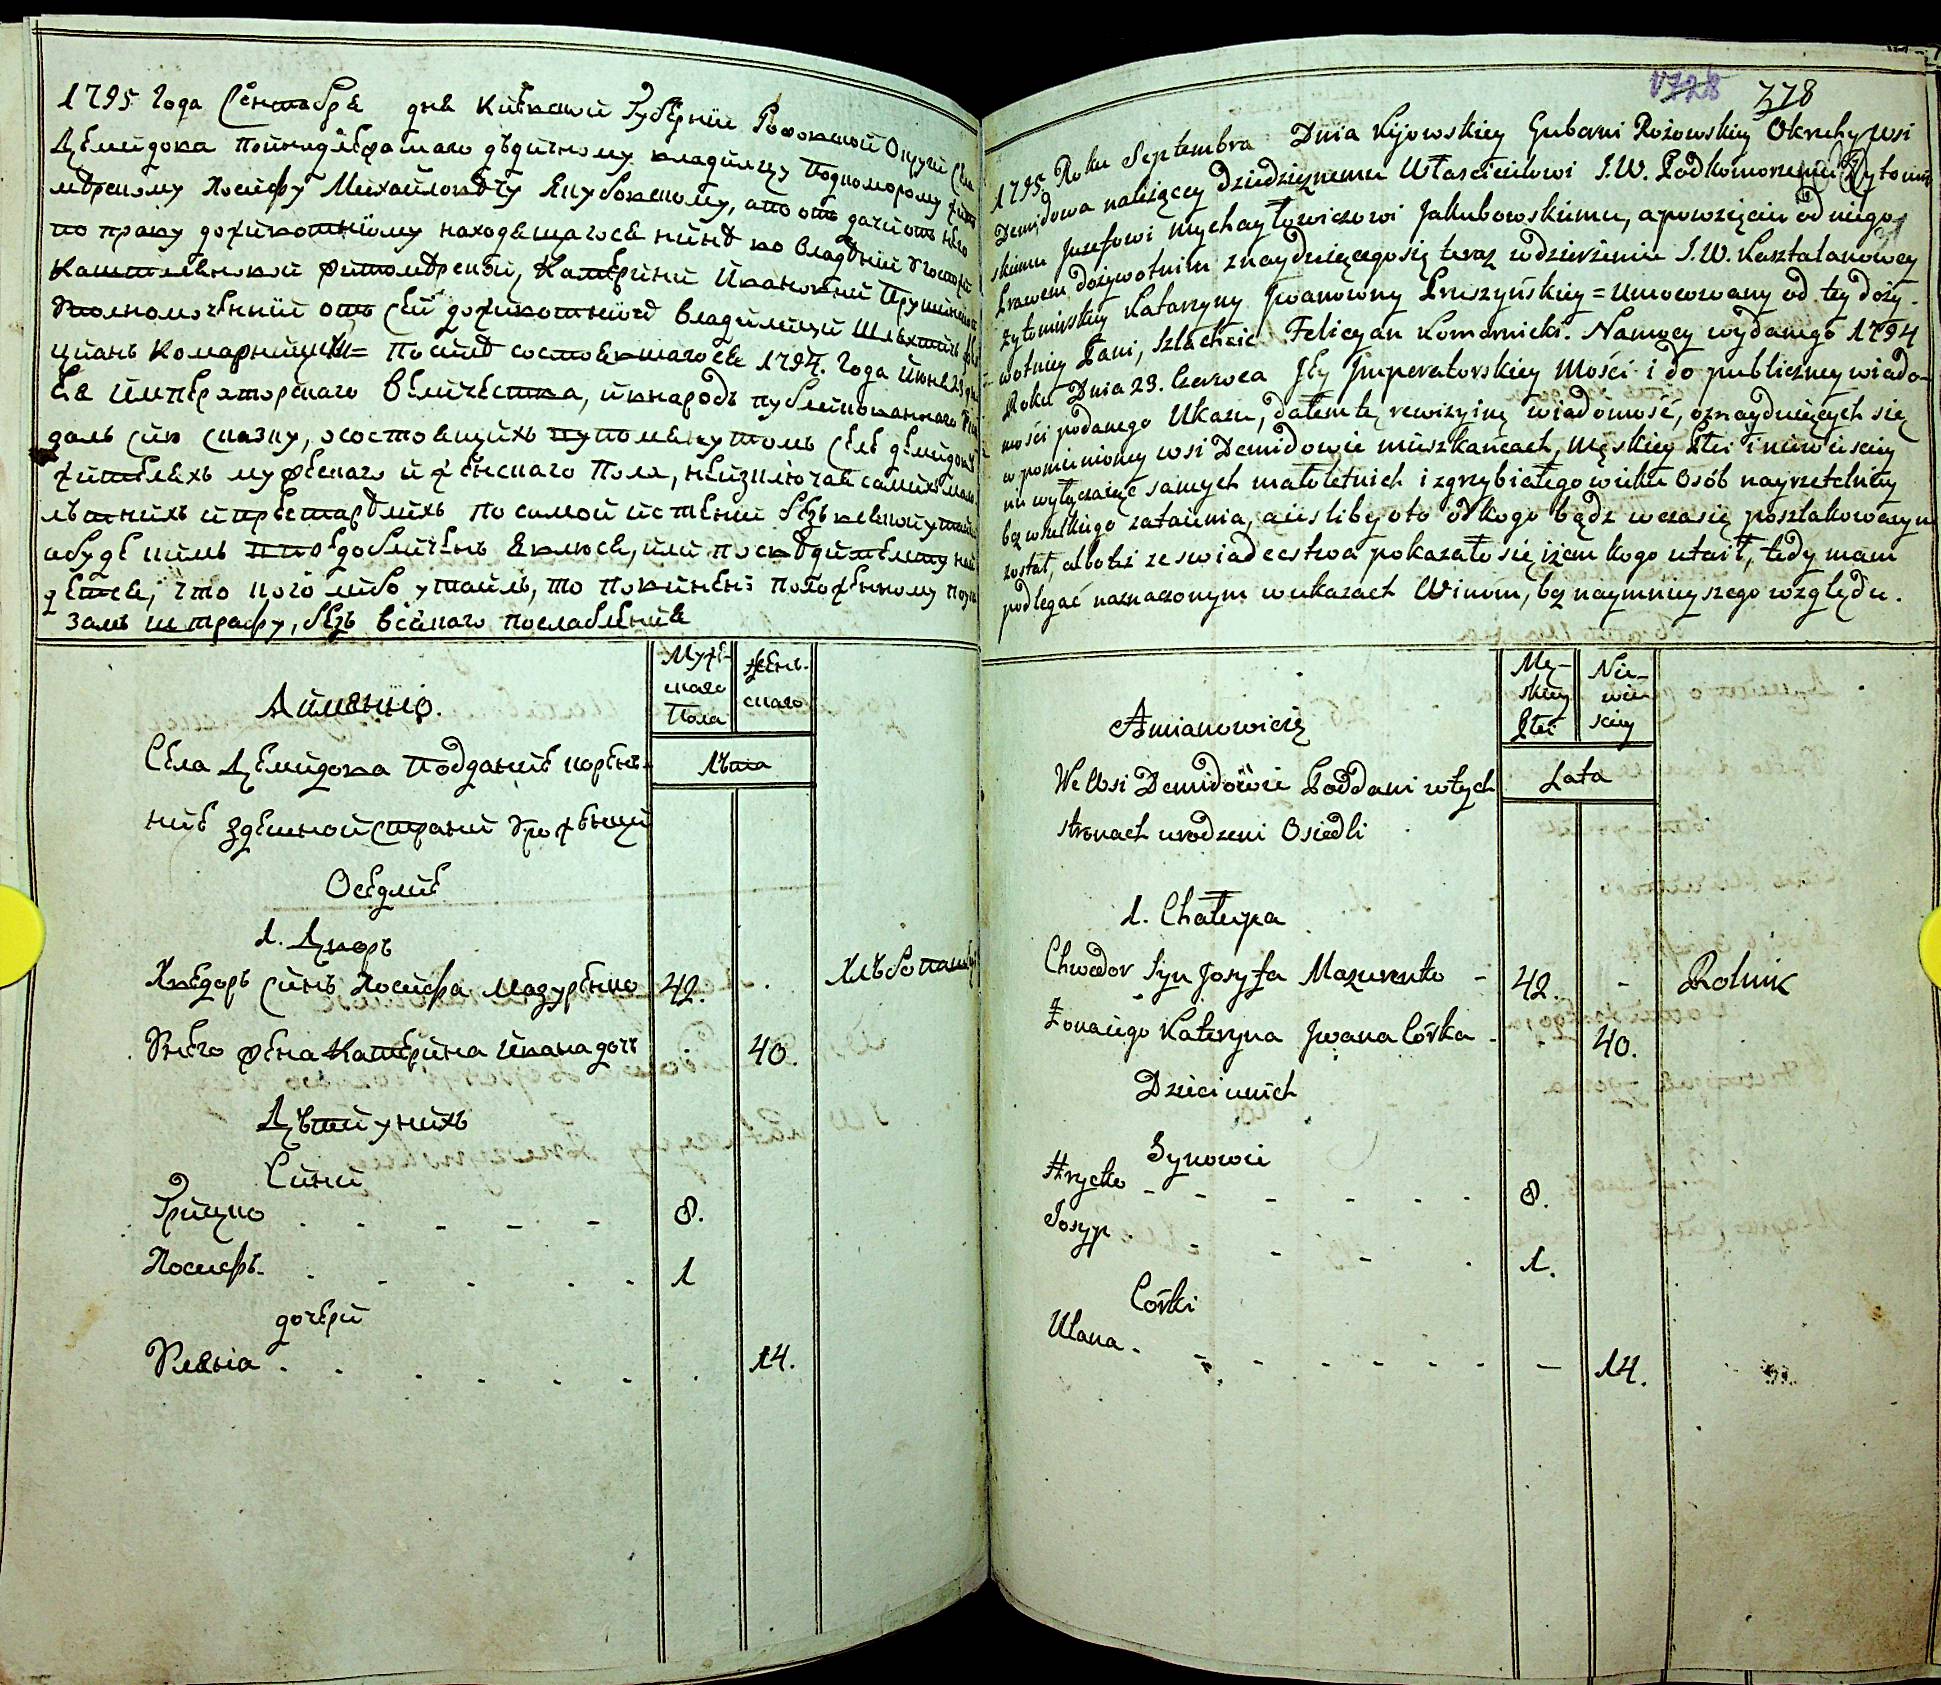 1795 Года Сентабра дна Киевской Губернии Рожовской Округи Села
Демидова принадлежашаго дѣдичному владилцу Подкоморому Жито
мѣрскому Иосифу Михайловѣчу Якубовскому, а по отъ дачи отъ него
по праву доживотніому находящагося нинѣ во владѣнии Госпожи
Каштелановой Житомѣрской, Катерини Ивановни Прушинской
Уполномоченний отъ сей доживотніой владилици Шляхтичъ Фели
циянъ Комарницкий= После состоявшагося 1794. Года Июня 23 дня
Ея Императорскаго Величества, и внародъ публикованнаго Указа
далъ сию сказку, о состоящихъ в упомянутомъ селѣ Демидовѣ
жителяхъ мужескаго и женскаго Пола, не изключая самихъ мало
лѣтнихъ и престарѣлихъ по самой истенни безъ всякой утайки
а буде кемъ
детея, что кого либо утаилъ, то повиненъ положенному по ука
замъ штрафу, безъ всякаго послабления
Муже-
скаго
Пола
Жень-
скаго
А имянно.
Лѣта
Села Демидова Поддание корен-
ние здешной страни Урожѣнци
Оседлие
1. Дворъ
Хведоръ синъ Иосифа Мазуренко 42. . Хлѣбопашец
У него жена Катерина Ивана дочь . 40.
Дѣти у нихъ
Сини
Грицко . . - - - 8.
Иосифъ. . - - . . 1
дочери
Уляна . . . - - - . 14.
1728 378
31
1795 Roku Septembra Dnia Kijowskiey Gubernii Rożowskiey Okruhy wsi
Demidowa należącey dziedzicznemu Właścicielowi J.W. Podkomorzemu Żytomir
skiemu Jozefowi Mychayłowiczowi Jakubowskiemu, a powzięciu od niego
Prawem dożywotnim znayduięcego się teraz w dzierżeniu J.W. Kasztalanowey
Żytomirskiey Katarzyny Jwanowny Pruszyńskiey = Umocowany od tey doży-
wotniey Pani, Szlachcic Felicyan Komarnicki. Na mocy wydanego 1794
Roku Dnia 23. Czerwca Jey Jmperatorskiey Mości i do publiczney wiado-
mości podanego Ukazu, dałem tę rewizyinę wiadomość, o znayduięcych się
w pomienioney wsi Demidowie mieszkańcach, męskiey Płci i niewieściey
nie wyłączaięc samych małoletnich i zgrzybiałego wieku Osób nayrzetelniey
bez wszelkiego zataienia, a ieśliby oto od kogo bądz w czasie poszlakowanym
został, albo też ze swiadectwa pokazało się iżem kogo utaił, tedy mam
podlegać naznaczonym w ukazach Winom, bez naymnieyszego względu.
Mę-
skiey
Płci
Nie-
wie-
sciey
Amianowicie
Lata
We Wsi Demidowie Poddani w tych
stronach urodzeni Osiedli
1. Chałupa
Chwedor Syn Josyfa Mazurenko - 42. - Rolnik
Żona iego Kateryna Jwana Córka - - 40.
Dzieci u nich
Synowie
Hrycko - - - - - 8.
Josyp - - - . 1.
Córki
Ulana - - - - - - - — 14.